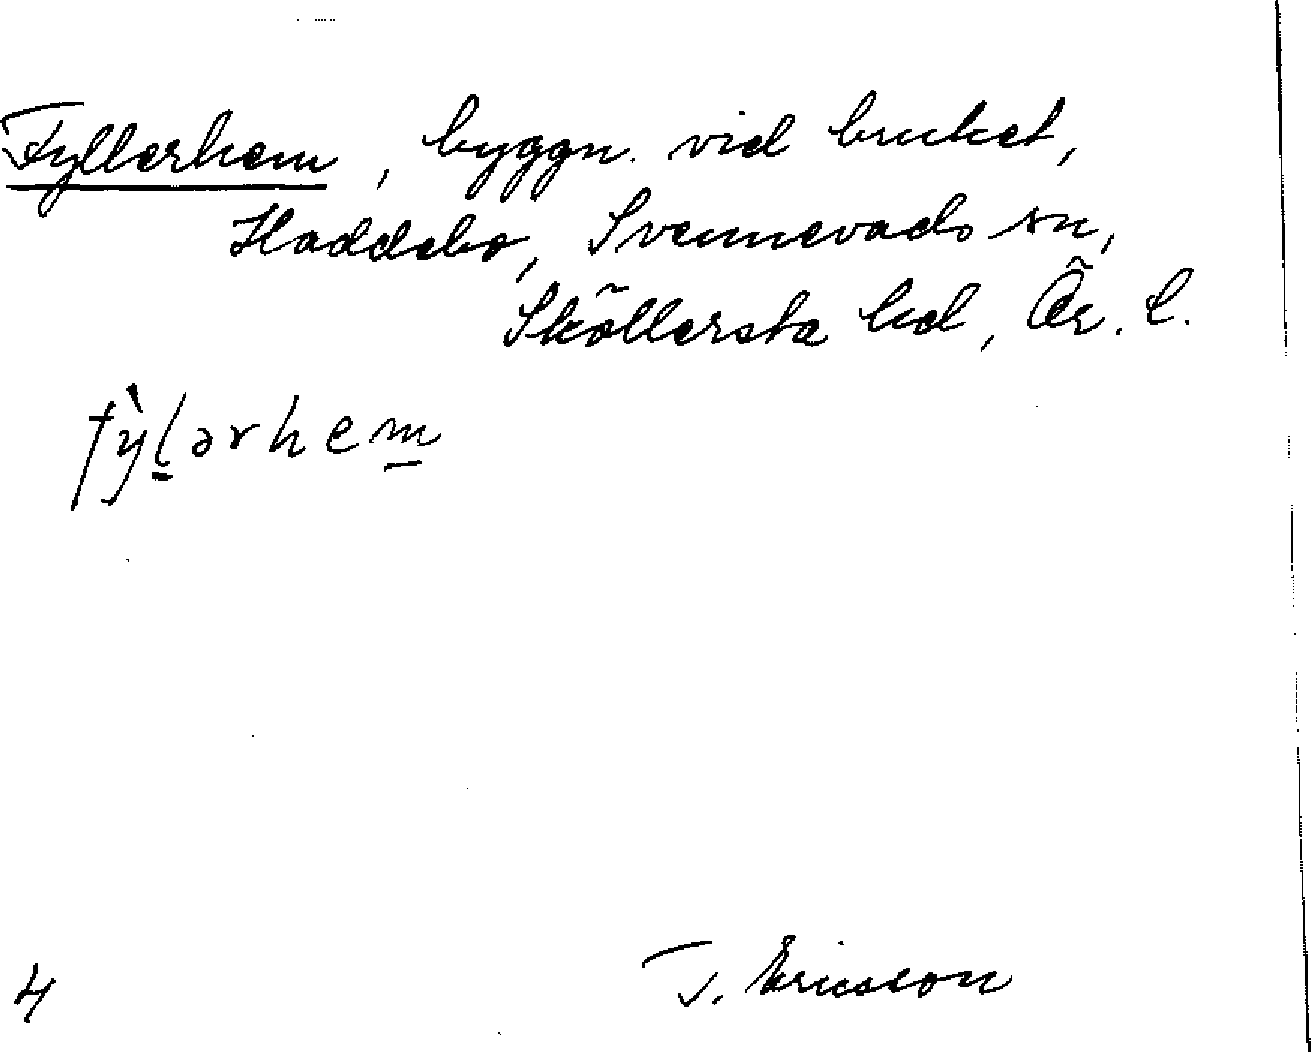 Fyllerhem, byggn. vid bruket,
Haddebo, Svennevads sn,
Sköllersta hd, Ör. l.
fỳl̲ərhem̲
4
T. Ericsson